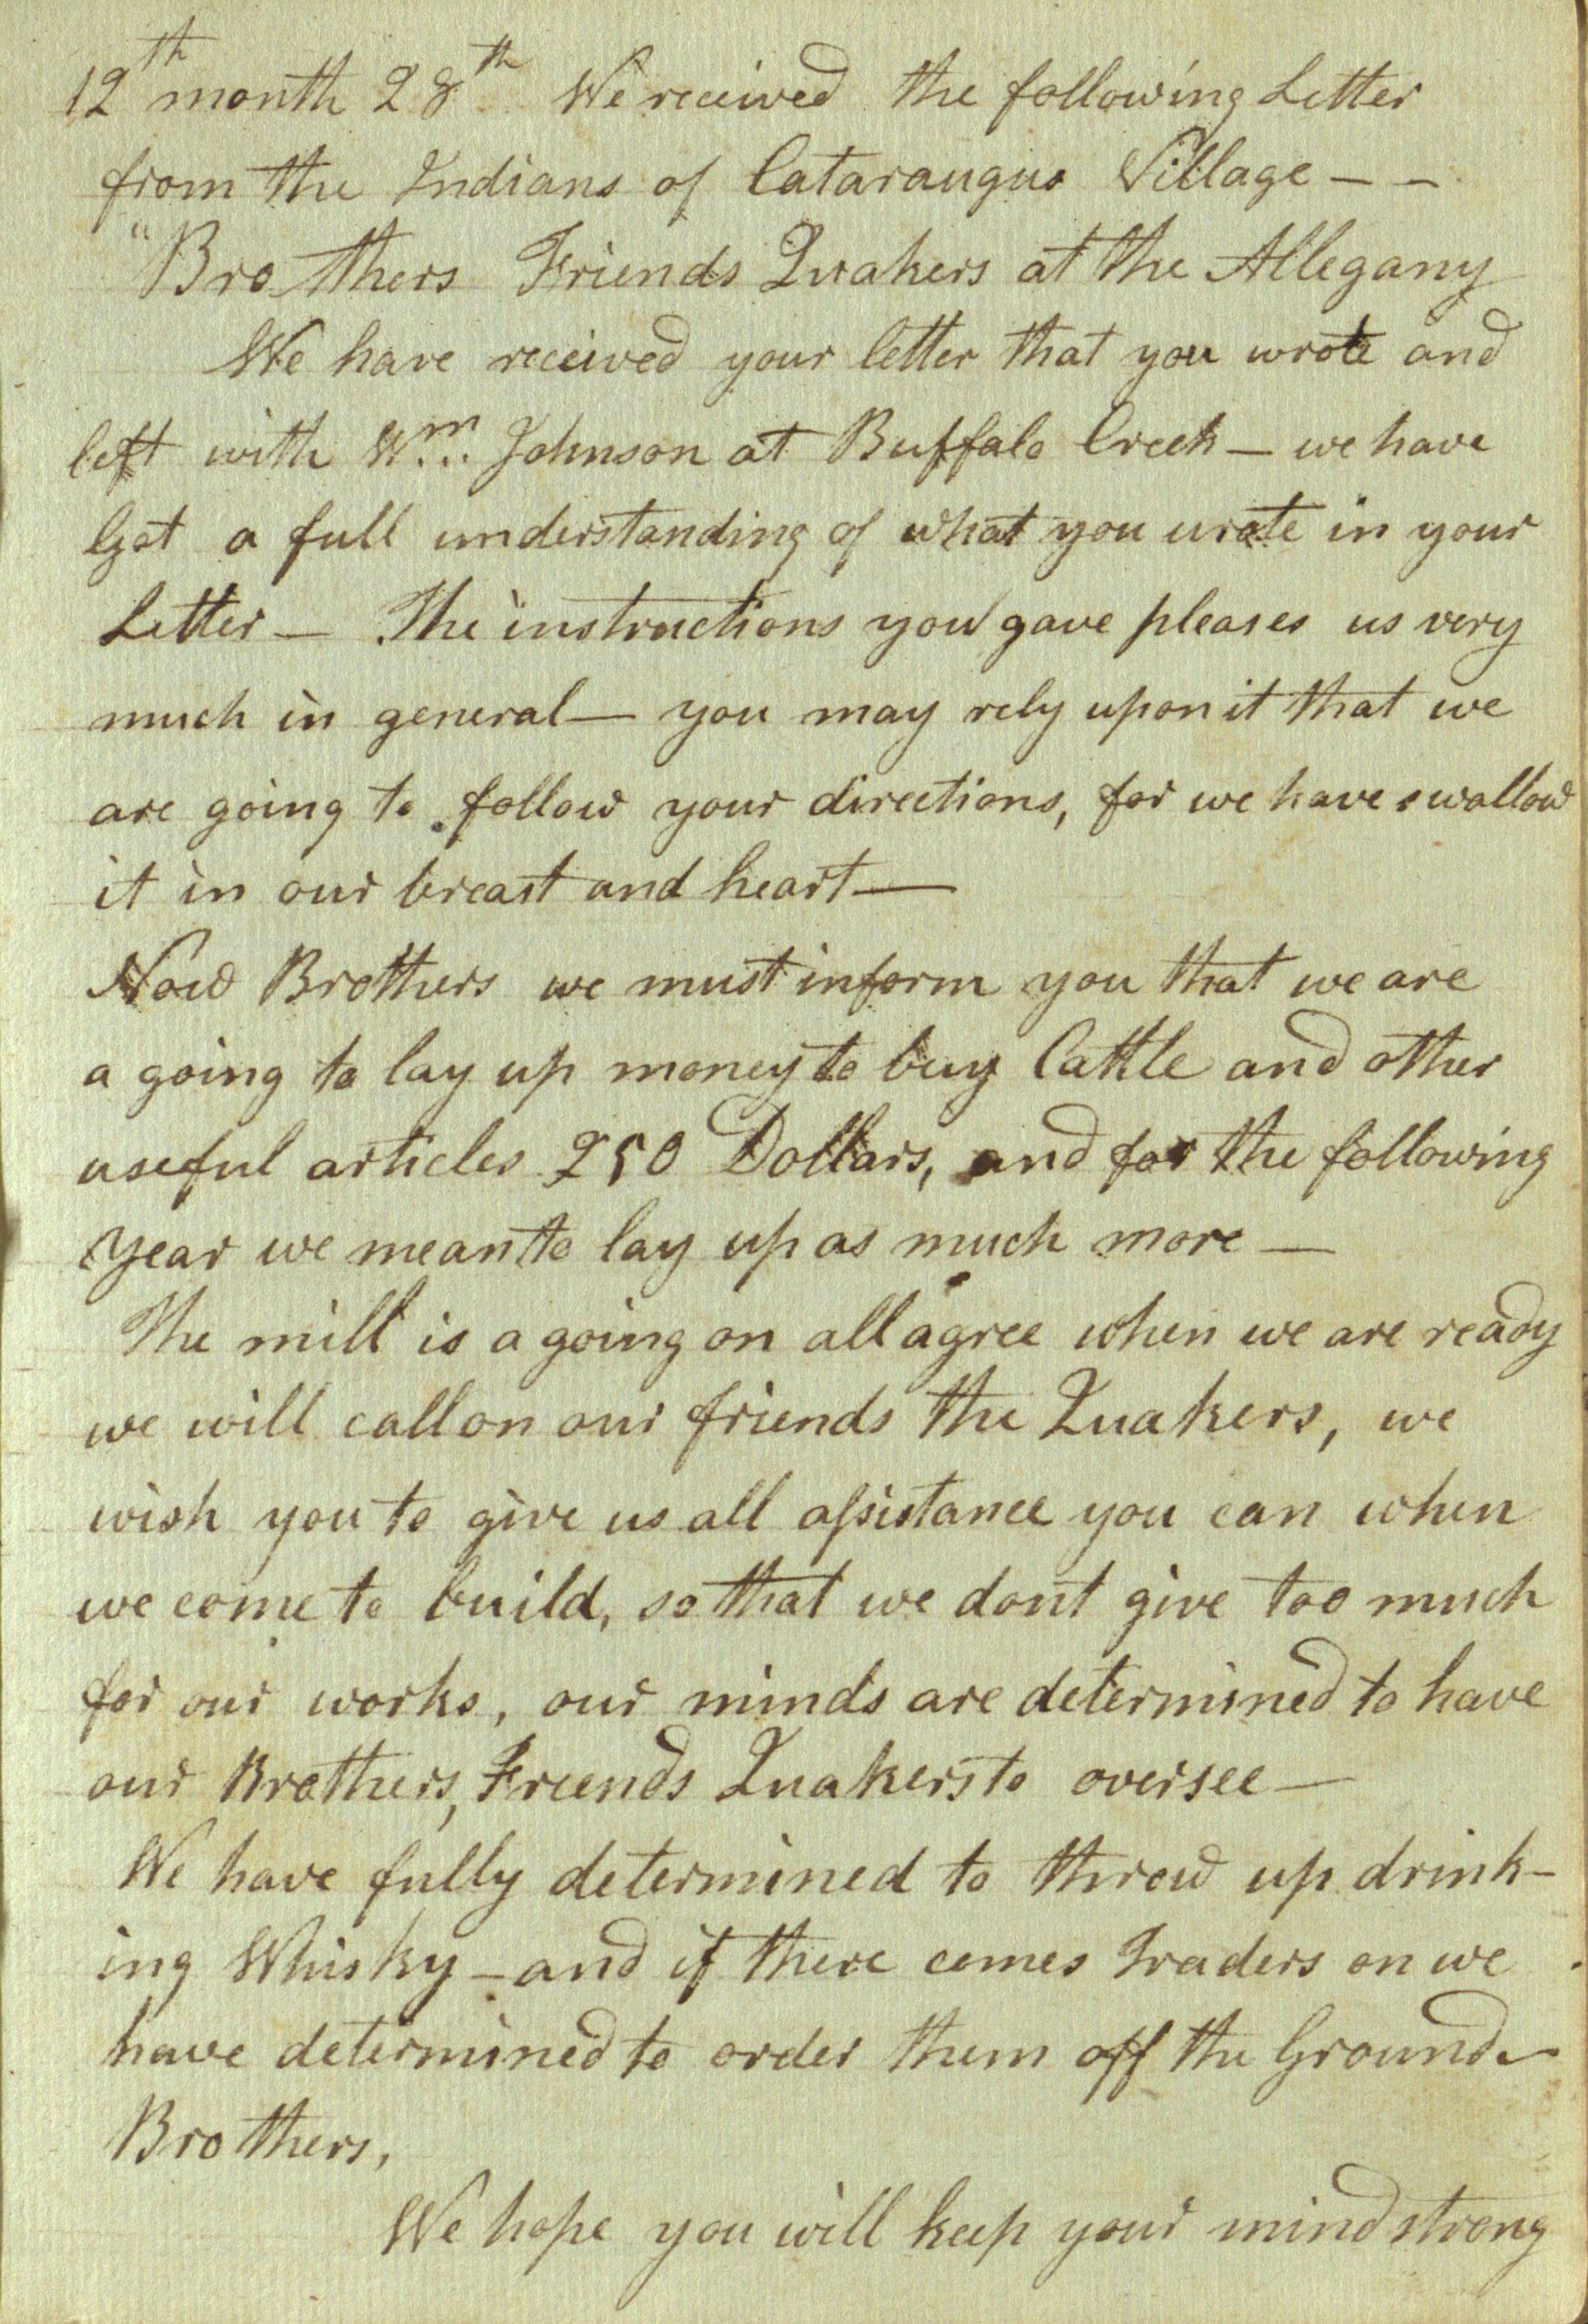 12th month 28th We received the following Letter
from the Indians of Cataraugus Village - -
"Brothers Friends Quakers at the Allegany
We have received your letter that you wrote and
left with Wm. Johnson at Buffalo Creek - we have
Got a full understanding of what you wrote in your
Letter - The instructions you gave pleases us very
much in general - you may rely upon it that we
are going to follow your directions, for we have swallow
it in our breast and heart -
Now Brothers we must inform you that we are
a going to lay up money to buy Cattle and other
useful articles 250 Dollars, and for the following
Year we mean to lay up as much more -
The mill is a going on all agree when we are ready
we will call on our friends the Quakers, we
wish you to give us all assistance you can when
we come to build, so that we dont give too much
for our works, our minds are determined to have
our Brothers, Friends Quakers to oversee -
We have fully determined to throw up drink-
ing Whisky - and if there comes Traders on we
have determined to order them off the Ground -
Brothers,
We hope you will keep your mind strong